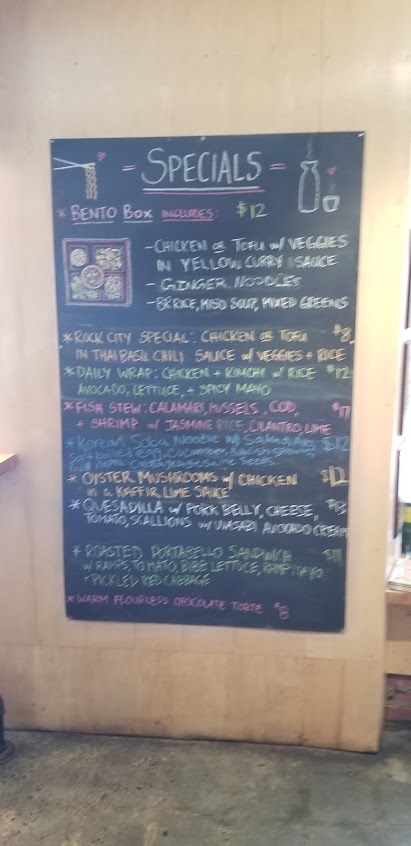 = SPECIALS =
* BENTO BOX INCLUDES: $12
- CHICKEN OR TOFU w/ VEGGIES
IN YELLOW CURRY SAUCE
- GINGER NOODLES
- BR RICE, MISO SOUP, MIXED GREENS
* ROCK CITY SPECIAL: CHICKEN OR TOFU $8
IN THAI BASIL CHILI SAUCE w/ VEGGIES + RICE
* DAILY WRAP: CHICKEN + KIMCHI w/ RICE $12
AVOCADO, LETTUCE, + SPICY MAYO
* FISH STEW: CALAMARI, MUSSELS, COD, $17
+ SHRIMP w/ JASMINE RICE, CILANTRO, LIME
* Korean Soba Noodle w/ $12
Soft boiled egg, cucumber,
* OYSTER MUSHROOMS w/ CHICKEN $12
in a KAFFIR LIME SAUCE
* QUESADILLA w/ PORK BELLY, CHEESE, $13
TOMATO, SCALLIONS w/ WASABI AVOCADO CREAM
* ROASTED PORTABELLO SANDWICH $11
w/ RAMPS, TOMATO, BIBB LETTUCE, RAMP MAYO
+ PICKLED RED CABBAGE
* WARM FLOURLESS CHOCOLATE TORTE $8